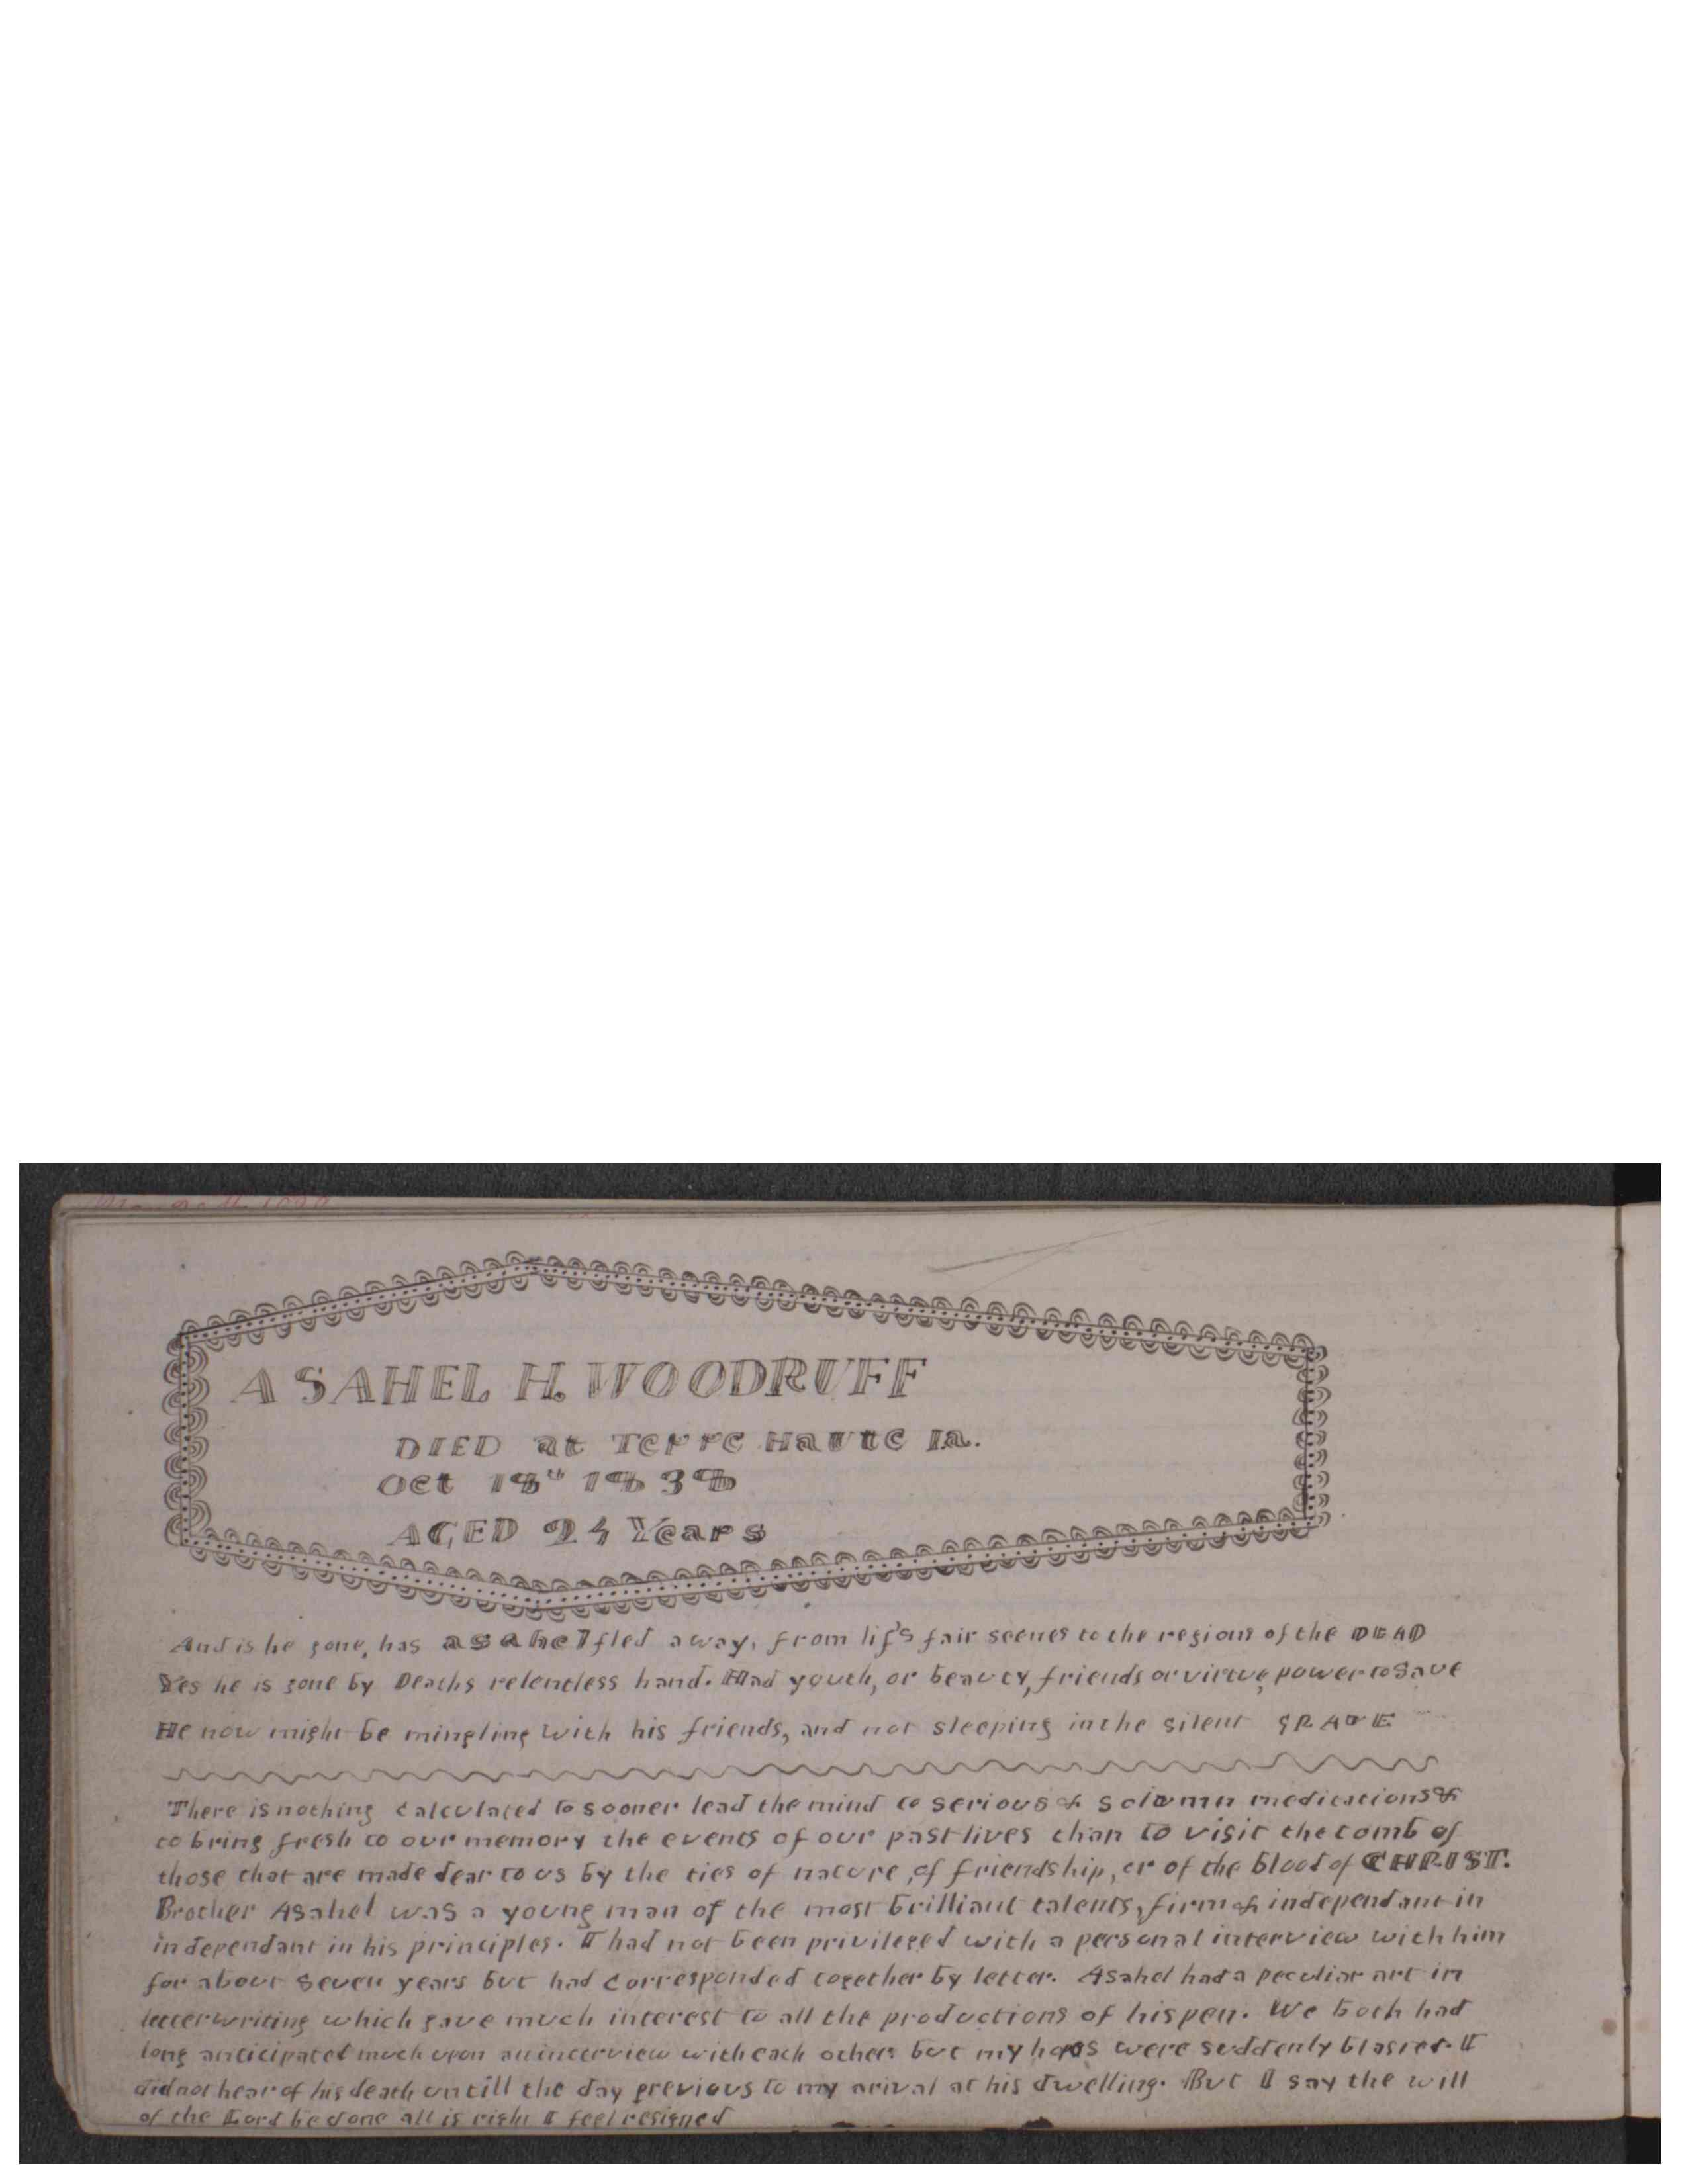 ASAHEL H. WOODRUFF
DIED at Terre Haute Ia.
Oct 18th 1838
AGED 24 Years
And is he gone, has asahel fled away, from lif's fair scenes to the regions of the DEAD
Yes he is gone by Deaths relentless hand. Had youth, or beauty, friends or virtue, power to Save
He now might be mingling with his friends, and not sleeping in the silent GRAVE
There is nothing calculated to sooner lead the mind to serious & solemn meditations &
to bring fresh to our memory the events of our past lives than to visit the tomb of
those that are made dear to us by the ties of nature, of friendship, or of the blood of CHRIST.
Brother Asahel was a young man of the most brilliant talents, firm & independant in
independant in his principles. I had not been privileged with a personal interview with him
for about Seven years but had corresponded together by letter. Asahel had a peculiar art in
letter writing which gave much interest to all the productions of his pen. We both had
long anticipated much upon an interview with each other but my hops were suddenly blasted. I
did not hear of his death untill the day previous to my arival at his dwelling. But I say the will
of the Lord be done all is right I feel resigned